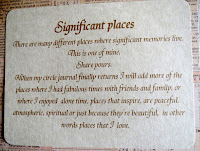 Significant places
There are many different places where significant memories live.
This is one of mine.
Share yours.
When my circle journal finally returns I will add more of the
places where I had fabulous times with friends and family, or
where I enjoyed alone time, places that inspire, are peaceful,
atmospheric, spiritual or just because they're beautiful, in other
words places that I love.